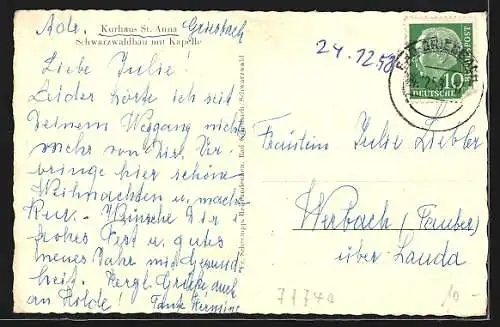 Adr. Kurhaus St. Anna Griesbach
Schwarzwaldbau mit Kapelle
Liebe Julie!
Leider hörte ich seit
Deinem Weggang nicht
mehr von Dir. Ver-
bringe hier schöne
Weihnachten u. mach
Kur. - Wünsche Dir
frohes Fest u. gutes
neues Jahr mit Gesund-
heit. Herzl. Grüße auch
an Hilde! Tante
24.12.58
DEUTSCHE BUNDESPOST
10
Fräulein Julie Liebler
Werbach (Tauber)
über Lauda
71740
10.-